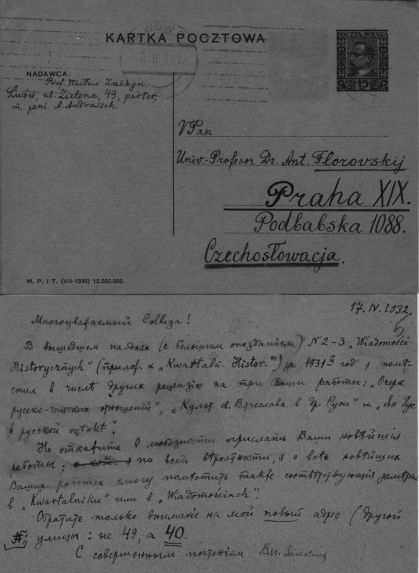 KARTKA POCZTOWA
LWÓW
15
NADAWCA:
Prof. Wacław
Lwów, ul. Zielona, 49, parter,
m. pani A.
WPan
Univ.-Profesor Dr. Ant. Florovskij
Praha XIX.
Podbabska 1088.
Czechosłowacja.
M. P. i T. (VII-1930) 15.000.000.
17. IV. 1932
Многоуважаемый Collega!
В вышедшем на-днях (с большим опозданием) N 2-3 „Wiadomości
Historycznych" (прилож. к „Kwartaln. Histor.") за 1931й год я поме-
стил в числѣ других рецензію на три Ваши работы: „Очерк
русско-чешских отношений", „Культ св. Вячеслава в др. Руси" и
в русской оценке".
Не откажите в любезности прислать Ваши новѣйшія
работы; по всей вѣроятности, я о всѣх новѣйших
Ваших работах смогу помѣстить такіе соотвѣтствующія замѣтки
в „Kwartalniku" или в „Wiadomościach".
Обратите только вниманіе на мой новый адрес (другой
№ улицы: не 49, а 40.
С совершенным почтеніем